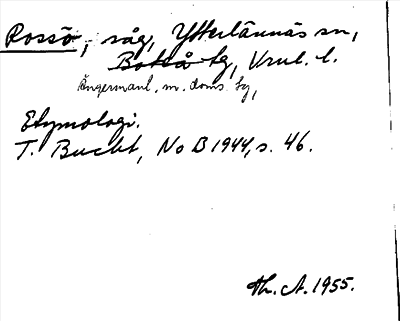 Rossö, såg, Ytterlännäs sn,
Boteå tg, Vrnl. l.
Ångermanl. m. doms. tg,
Etymologi.
T. Bucht, NoB 1944, s. 46.
Th. A. 1955.